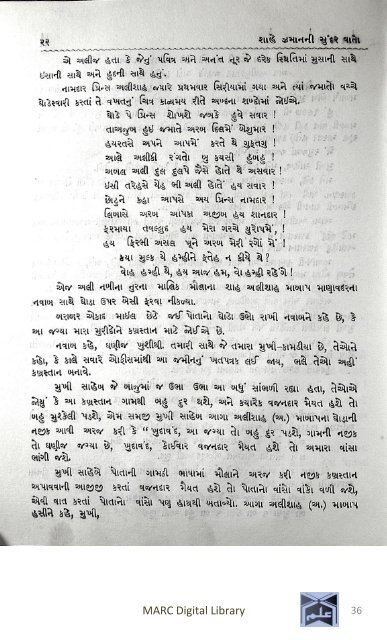 ૨૨ શાહે ઝમાનની સુંદર વાતો
એ અલીજ હતા કે જેનું પવિત્ર અને અનંત નૂર જે દરેક સ્થિતિમાં મુસાની સાથે
ઈસાની સાથે અને હુદની સાથે હતું.
નામદાર પ્રિન્સ અલીશાહ જ્યારે પ્રથમવાર સિરીયામાં ગયા અને ત્યાં જમાતો વચ્ચે
ઘોડેસ્વારી કરતાં તે વખતનું ચિત્ર કાવ્યમય રીતે અલ્વના શબ્દોમાં જોઈએ.
ઘોડે પે પ્રિન્સ શોખસે જબકે હુવે સવાર !
તાઅજુબ હુઈ જમાતે અરબ દિલમેં બેશુમાર !
હયરતસે અપને આપમેં કરતે થે ગુફતગુ !
આલે અલીકી રંગતો બુ કયસી હુબહુ !
અબલ અલી દુલ દુલપે જૈસે હોતે થે અસવાર !
ઈસી તરેહસે યેહ ભી અલી હોતે હય સવાર !
છોટુને કહા આપસે અય પ્રિન્સ નામદાર !
લિબાસે અરબ આપકા અજીબ હય શાનદાર !
ફરમાયા તવલ્લુદ હય મેરા ગરચે યુરોપમેં,
હય ફિરભી અસલ ખૂને અરબ મેરી રગોં મેં !
કયા મુલ્ક યે હમહીને ફતેહ ન કીયે થે ?
વોહ હમહી થે, હય આજ હમ, વો હમહી રહેંગે !
એજ અલી નબીના નુરના માલિક મૌલાના શાહ અલીશાહ માબાપ માણાવદરના
નવાબ સાથે ઘોડા ઉપર બેસી ફરવા નીકળ્યા.
બરાબર એકાદ માઈલ છેટે જઈ પોતાનો ઘોડો ઉભો રાખી નવાબને કહે છે, કે
આ જગ્યા મારા મુરીદોને કબ્રસ્તાન માટે જોઈએ છે.
નવાબ કહે, ઘણીજ ખુશીથી. તમારી સાથે જે તમારા મુખી-કામડીયા છે, તેઓને
કહો, કે કાલે સવારે ઓફીસમાંથી આ જમીનનું ખતપત્રક લઈ જાય, ભલે તેઓ અહીં
કબ્રસ્તાન બનાવે.
મુખી સાહેબ જે બાજુમાં જ ઉભા ઉભા આ બધું સાંભળી રહ્યા હતા, તેઓએ
જોયું કે આ કબ્રસ્તાન ગામથી બહુ દુર થશે, અને ક્યારેક વજનદાર મૈયત હશે તો
બહુ મુશ્કેલી પડશે, એમ સમજી મુખી સાહેબ આગા અલીશાહ (અ.) માબાપના ઘોડાની
નજીક આવી અરજ કરી કે “ ખુદાવંદ, આ જગ્યા તો બહુ દુર પડશે, ગામની નજીક
તો ઘણીજ જગ્યા છે, ખુદાવંદ, કોઈવાર વજનદાર મૈયત હશે તો અમારા વાંસા
ભાંગી જશે.
મુખી સાહેબે પોતાની ગામડી ભાષામાં મૌલાને અરજ કરી નજીક કબ્રસ્તાન
અપાવવાની આજીજી કરતાં વજનદાર મૈયત હશે તો પોતાનો વાંસો વાંકો વળી જશે,
એવી વાત કરતાં પોતાનો વાંસો પણ હાથથી બતાવ્યો. આગા અલીશાહ (અ.) માબાપ
હસીને કહે, મુખી,
MARC Digital Library 36